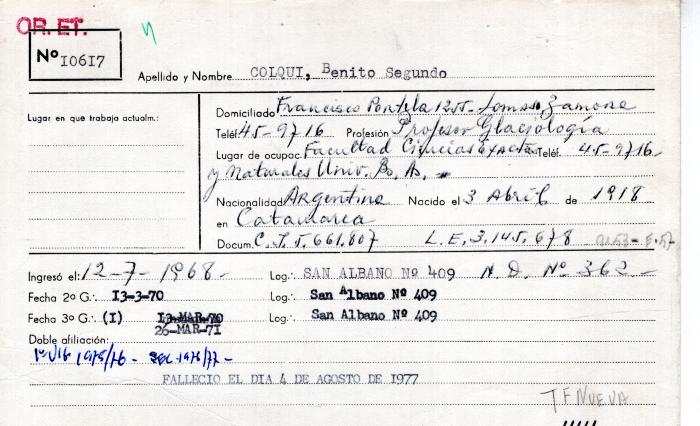 OR. ET.
Nº 10617
Apellido y Nombre COLQUI, Benito Segundo
Lugar en que trabaja actualm.:
Domiciliado Francisco Portela 1255 - Lomas Zamora
Teléf. 45-9716 Profesión Profesor Glaciología
Lugar de ocupac. Facultad Ciencias Exactas Teléf. 45-9716-
y Naturales Univ. Bs. As. -
Nacionalidad Argentina Nacido el 3 Abril de 1918
en Catamarca
Docum. C.I. 5.661.807 L.E. 3.145.678
Ingresó el: 12-7-1968- Log.·. SAN ALBANO Nº 409 N.D. Nº 362-
Fecha 2º G.·. 13-3-70 Log.·. San Albano Nº 409
Fecha 3º G.·. (I) 13-MAR-70 Log.·. San Albano Nº 409
26-MAR-71
Doble afiliación:
1º VIG 1975/76 - SEC. 1976/77-
FALLECIO EL DIA 4 DE AGOSTO DE 1977
TF NUEVA